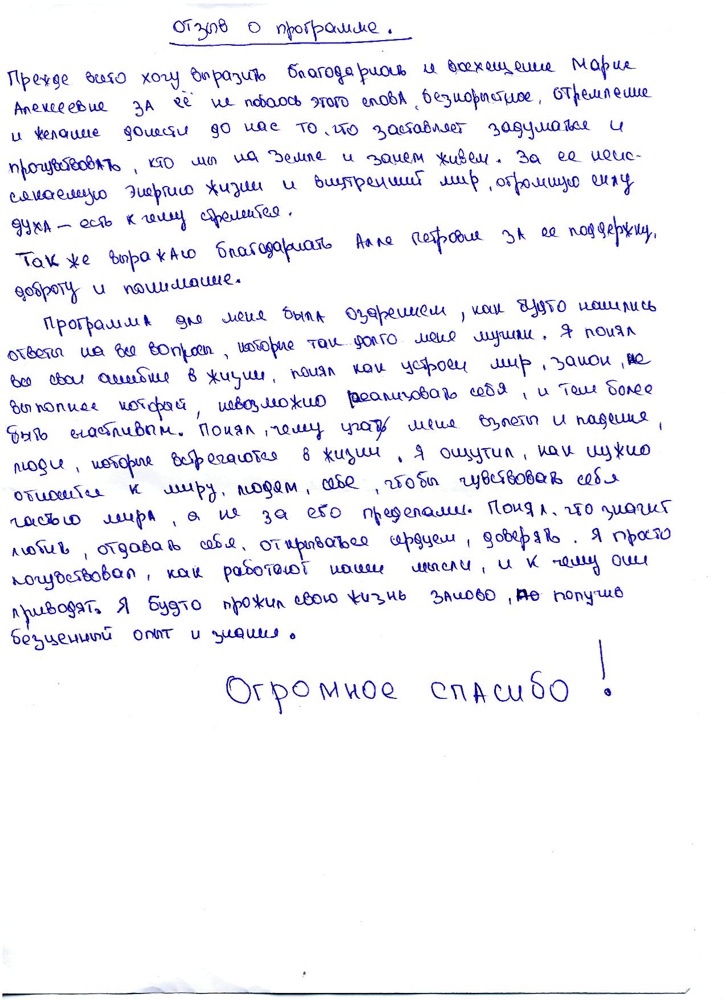 Отзыв о программе.
Прежде всего хочу выразить благодарность и восхещение Марие
Алексеевне за её не побоюсь этого слова, безкорыстное, стремление
и желание донести до нас то, что заставляет задуматься и
прочувствовать, кто мы на Земле и зачем живем. За ее неис-
сякаемую энергию жизни и внутренний мир, огромную силу
духа – есть к чему стремится.
Так же выражаю благодарность Алле Петровне за ее поддержку,
доброту и понимание.
Программа для меня была озарением, как будто нашлись
ответы на все вопросы, которые так долго меня мучили. Я понял
все свои ошибки в жизни, понял как устроен мир, закон, не
выполнив который, невозможно реализовать себя, и тем более
быть счастливым. Понял, чему учат меня взлеты и падения,
люди, которые встречаются в жизни. Я ощутил, как нужно
относится к миру, людям, себе, чтобы чувствовать себя
частью мира, а не за его пределами. Понял, что значит
любить, отдавать себя, открываться сердцем, доверять. Я просто
почувствовал, как работают наши мысли, и к чему они
приводят. Я будто прожил свою жизнь заново, получив
безценный опыт и знания.
Огромное спасибо!